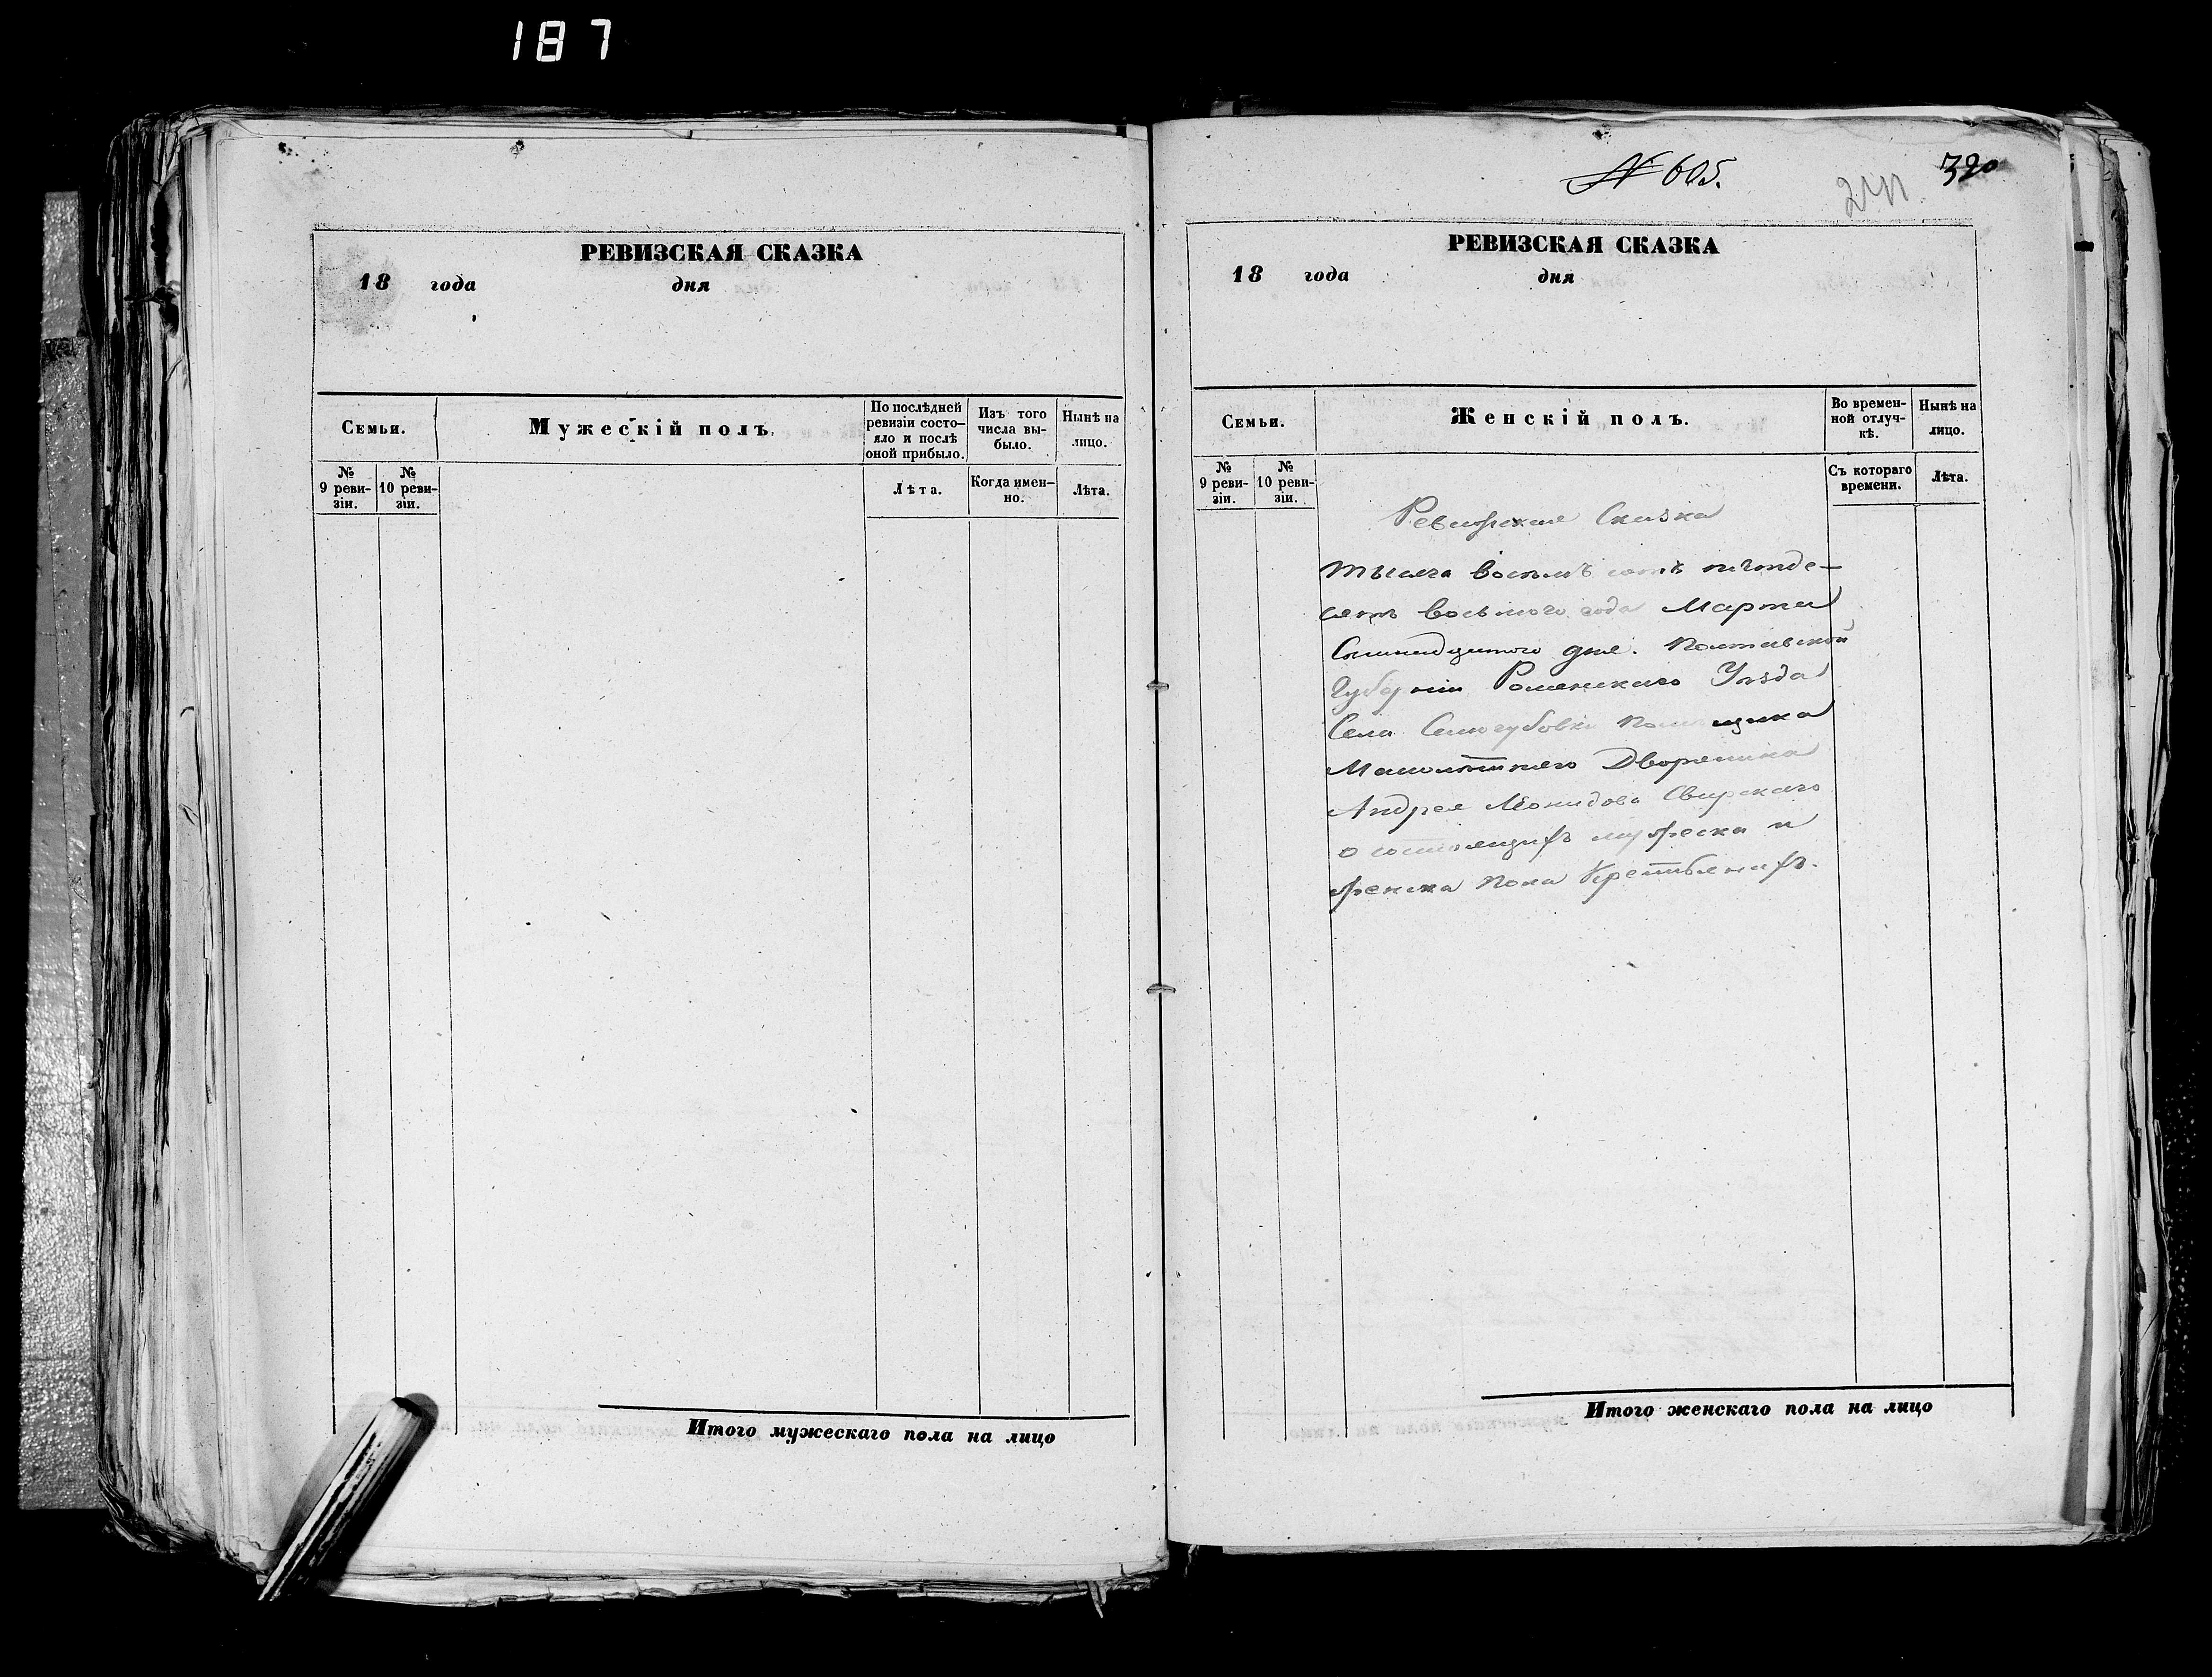 187
РЕВИЗСКАЯ СКАЗКА
18 года дня
Семьи.
Мужескій полъ.
По послѣдней
ревизіи состо-
яло и послѣ
оной прибыло.
Изъ того
числа вы-
было.
Нынѣ на
лицо.
№
9 реви-
зіи.
№
10 реви-
зіи.
Лѣта.
Когда имен-
но.
Лѣта.
Итого мужескаго пола на лицо
№ 605.
320
РЕВИЗСКАЯ СКАЗКА
18 года дня
Семьи.
Женскій полъ.
Во времен-
ной отлуч-
кѣ.
Нынѣ на
лицо.
№
9 реви-
зіи.
№
10 реви-
зіи.
Съ котораго
времени.
Лѣта.
Ревизская Сказка
тысяча восемъ сотъ пятде-
сятъ восьмого года Марта
дня. Полтавской
Губерніи Роменскаго Уѣзда
Села Помѣщика
Малолѣтняго Дворянина
Андрея Свирскаго
о состоящихъ мужеска и
женска пола Крестьянахъ.
Итого женскаго пола на лицо